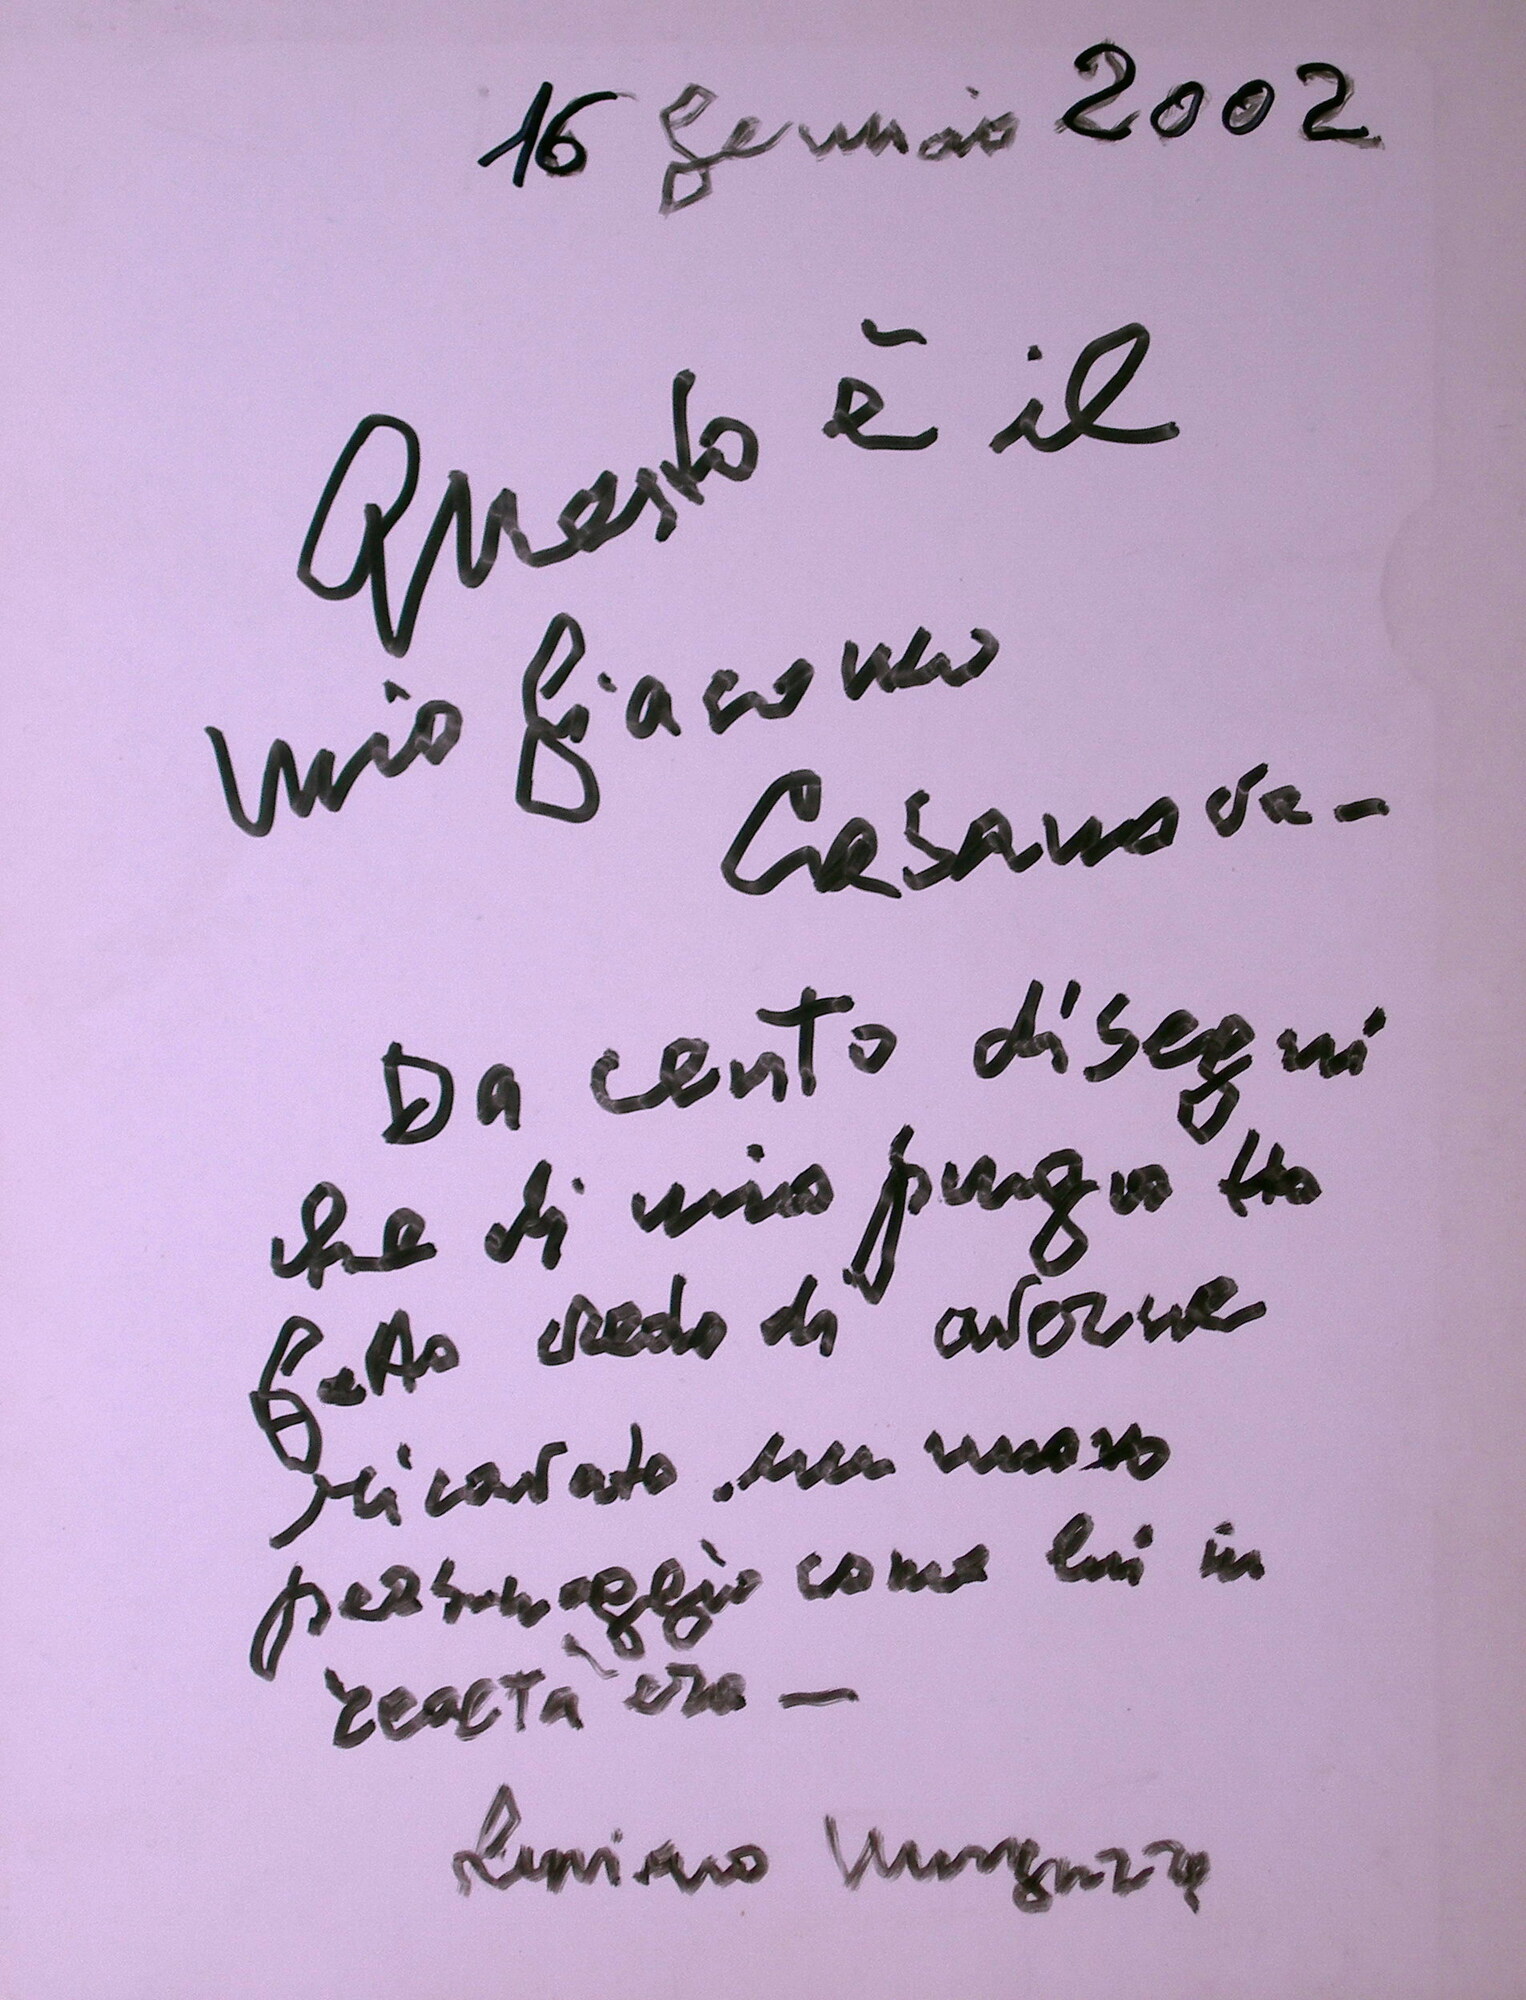 16 Gennaio 2002
Questo è il
mio Giacomo
Casanova -
Da cento disegni
che di mio pugno ho
fatto credo di averne
ricavato un nuovo
personaggio come lui in
realtà era -
Luciano Minguzzi